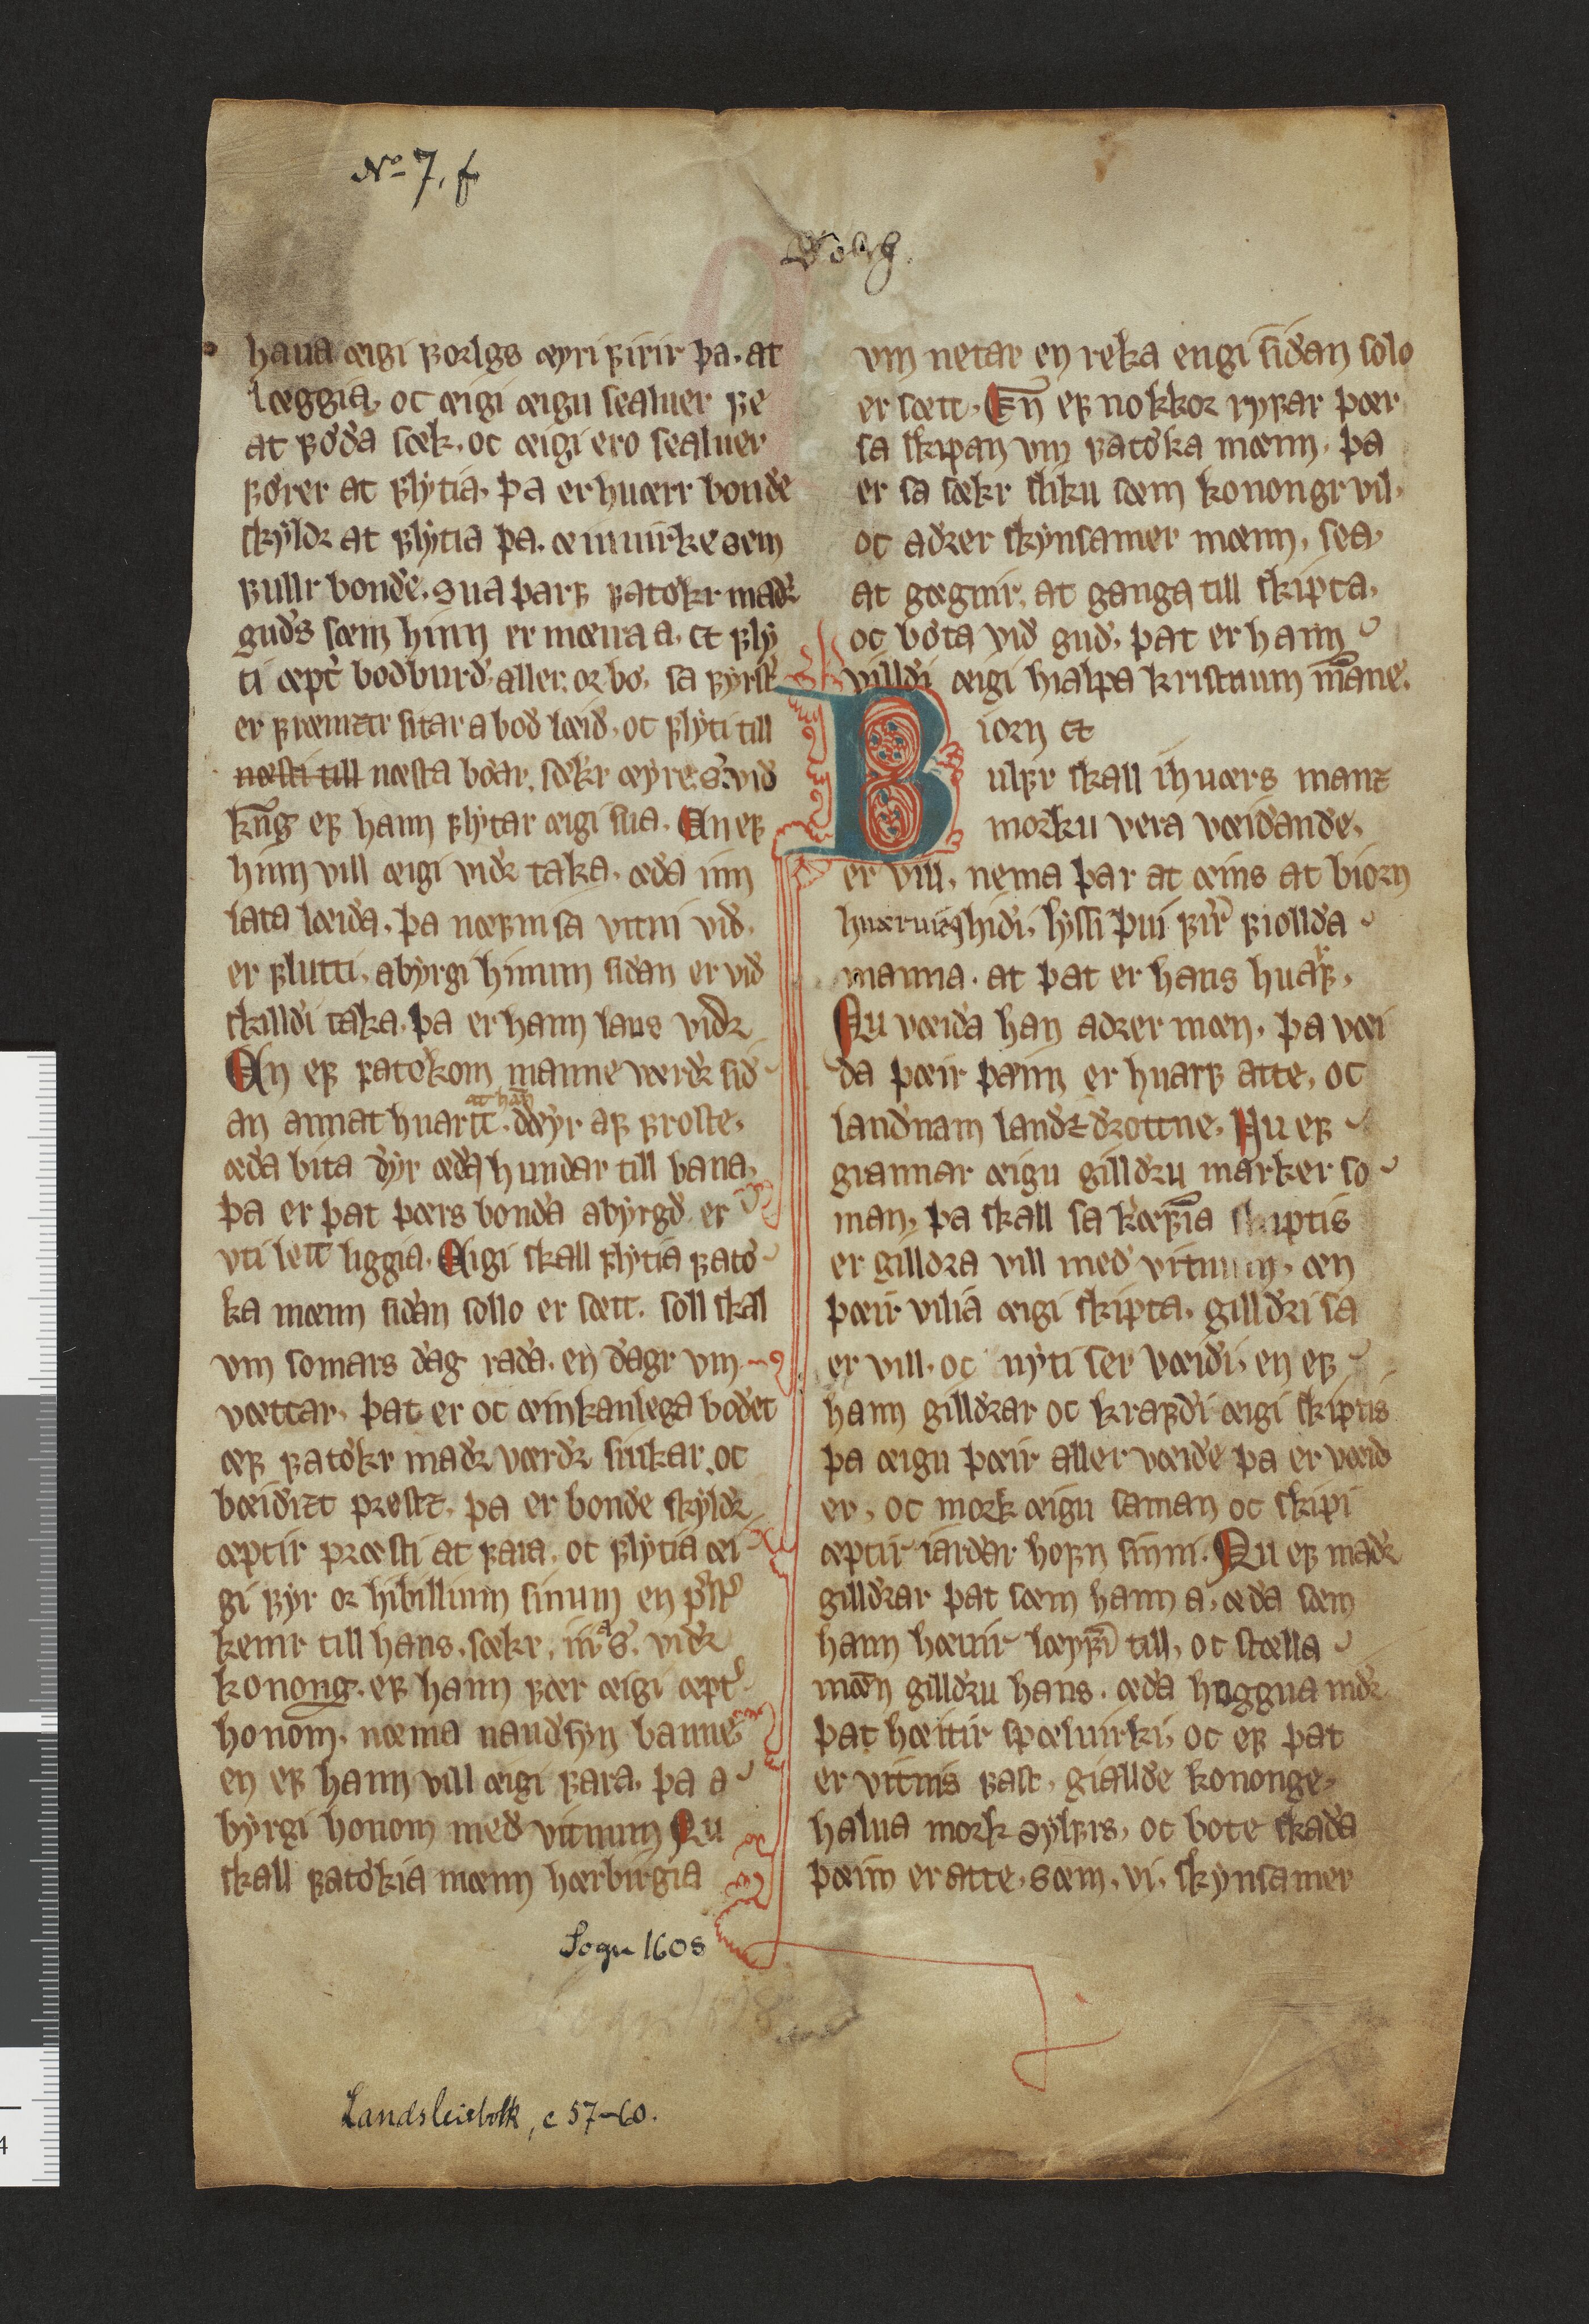 No 7, f
haua æigi forlgs œyri firir þa. at
læggia, oc æigi æigu sealuer fe
at føða sœk. oc æigi ero sealuer
fører at flytia, þa er huærr bonde
skyldr at flytia þa. æinuirke sem
fullr bonde. sua þarf fatøkr maðr
guðs sœm hinn er mæira a. ct fly
ti æptir boðburð. aller or bø, sa fyrst
er fræmztr sitar a boð læið, oc flyti till
næsti till næsta bøar, sækr œyre. s. við
kng ef hann flytar æigi sua. Æn ef
hinn vill æigi viðr taka, æða inn
lata læiða, þa næfni sa vitni við,
er flutti, abyrgi hinum siðan er við
skilldi taka, þa er hann laus viðr
Æn ef fatøkom manne værðr sið
at hann
an annat huartt. dœyr af froste,
æða bita dyr æða hundar till bana,
þa er þat þærs bonda abyrgð er
vti lett liggia. Æigi skall flytia fatø
ka mænn siðan sollo er sætt. soll skal
vm somars dag raða. en dagr vm
vættar, þat er oc æinkanlega boðet
æf fatøkr maðr værðr siukar, oc
bæiðizt prestz, þa er bonde skyldr
æptir præsti at fara, oc flytia æi
gi fyr or hibillium sinum en prstr
kemr till hans, sækr, iii a s. viðr
konong. ef hann fær æigi æptir
honom, næma nauðsyn banne
en ef hann vill æigi fara, þa a
byrgi honom með vitnum Nu
skall fatøkia mænn hærbirgia
vm netar en reka engi siðan solo
er sætt. Enn ef nokkor ryfar þær
sa skipan vm fatøka mænn, þa
er sa sækr sliku sæm konongr vil,
oc aðrer skynsamer mænn, sea,
at gægnir, at ganga till skipta,
oc bøta við guð, þat er hann
villdi æigi hialpa kristnum manne.
Biorn ct
ulfr skall ihuærs manz
morku vera væiðande,
er vill, nema þar at æins at biorn
hidi, lysti þui firir fiollda
manna. at þat er hans huarf,
Nu væiða han aðrer mæn, þa væi
ða þæir þann er huarf atte, oc
landnam landz drottne, Nu ef
grannar æigu gilldru marker so
man, þa skall sa kræfia skiptis
er gilldra vill með vitnum, æn
þæir vilia æigi skipta, gilldri sa
er vill. oc nyti ser væiði, en ef
hann gilldrar oc krafdi æigi skiptis
þa æigu þæir aller væiðe þa er væid
er, oc mork æigu saman oc skipi
æptir iardar hofn sinni. Nu ef maðr
gilldrar þat sæm hann a, æða sæm
hann hæuir lœyfi till, oc stælla
mæn gilldru hans. æða hoggua niðr
þat hæitir spæluirki, oc ef þat
er vitnis fast, giallde kononge,
halua mork sylfrs, oc bote skaða
þæim er atte, sæm, vi, skynsamer
Sogn 1608
Landsleiebolk, c 57-60.